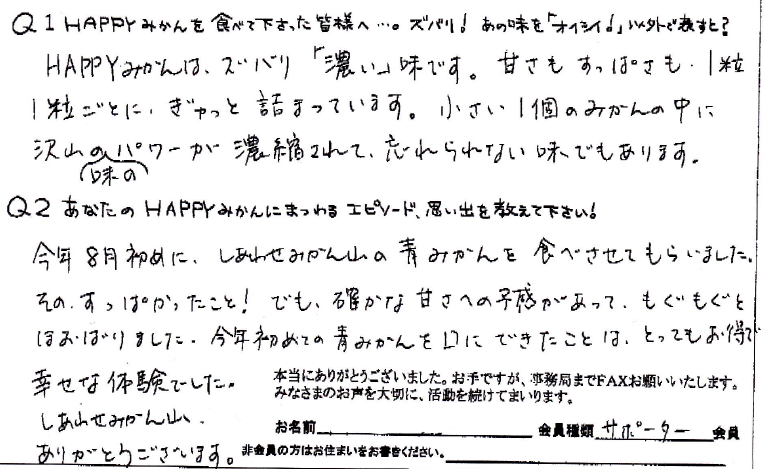 Q1 HAPPYみかんを食べて下さった皆様へ…。ズバリ!あの味を「オイシイ!」以外で表すと?
HAPPYみかんは、ズバリ「濃い」味です。甘さもすっぱさも、1粒
1粒ごとに、ぎゅっと詰まっています。小さい1個のみかんの中に
沢山のパワーが濃縮されて、忘れられない味でもあります。
(味の)
Q2 あなたのHAPPYみかんにまつわるエピソード、思い出を教えて下さい!
今年8月初めに、しあわせみかん山の青みかんを食べさせてもらいました。
その、すっぱかったこと!でも、確かな甘さへの予感があって、もぐもぐと
ほおばりました。今年初めての青みかんを口にできたことは、とってもお得で
幸せな体験でした。
しあわせみかん山、
ありがとうございます。
本当にありがとうございました。お手ですが、事務局までFAXお願いいたします。
みなさまのお声を大切に、活動を続けてまいります。
お名前 会員種類 サポーター 会員
非会員の方はお住まいをお書きください。